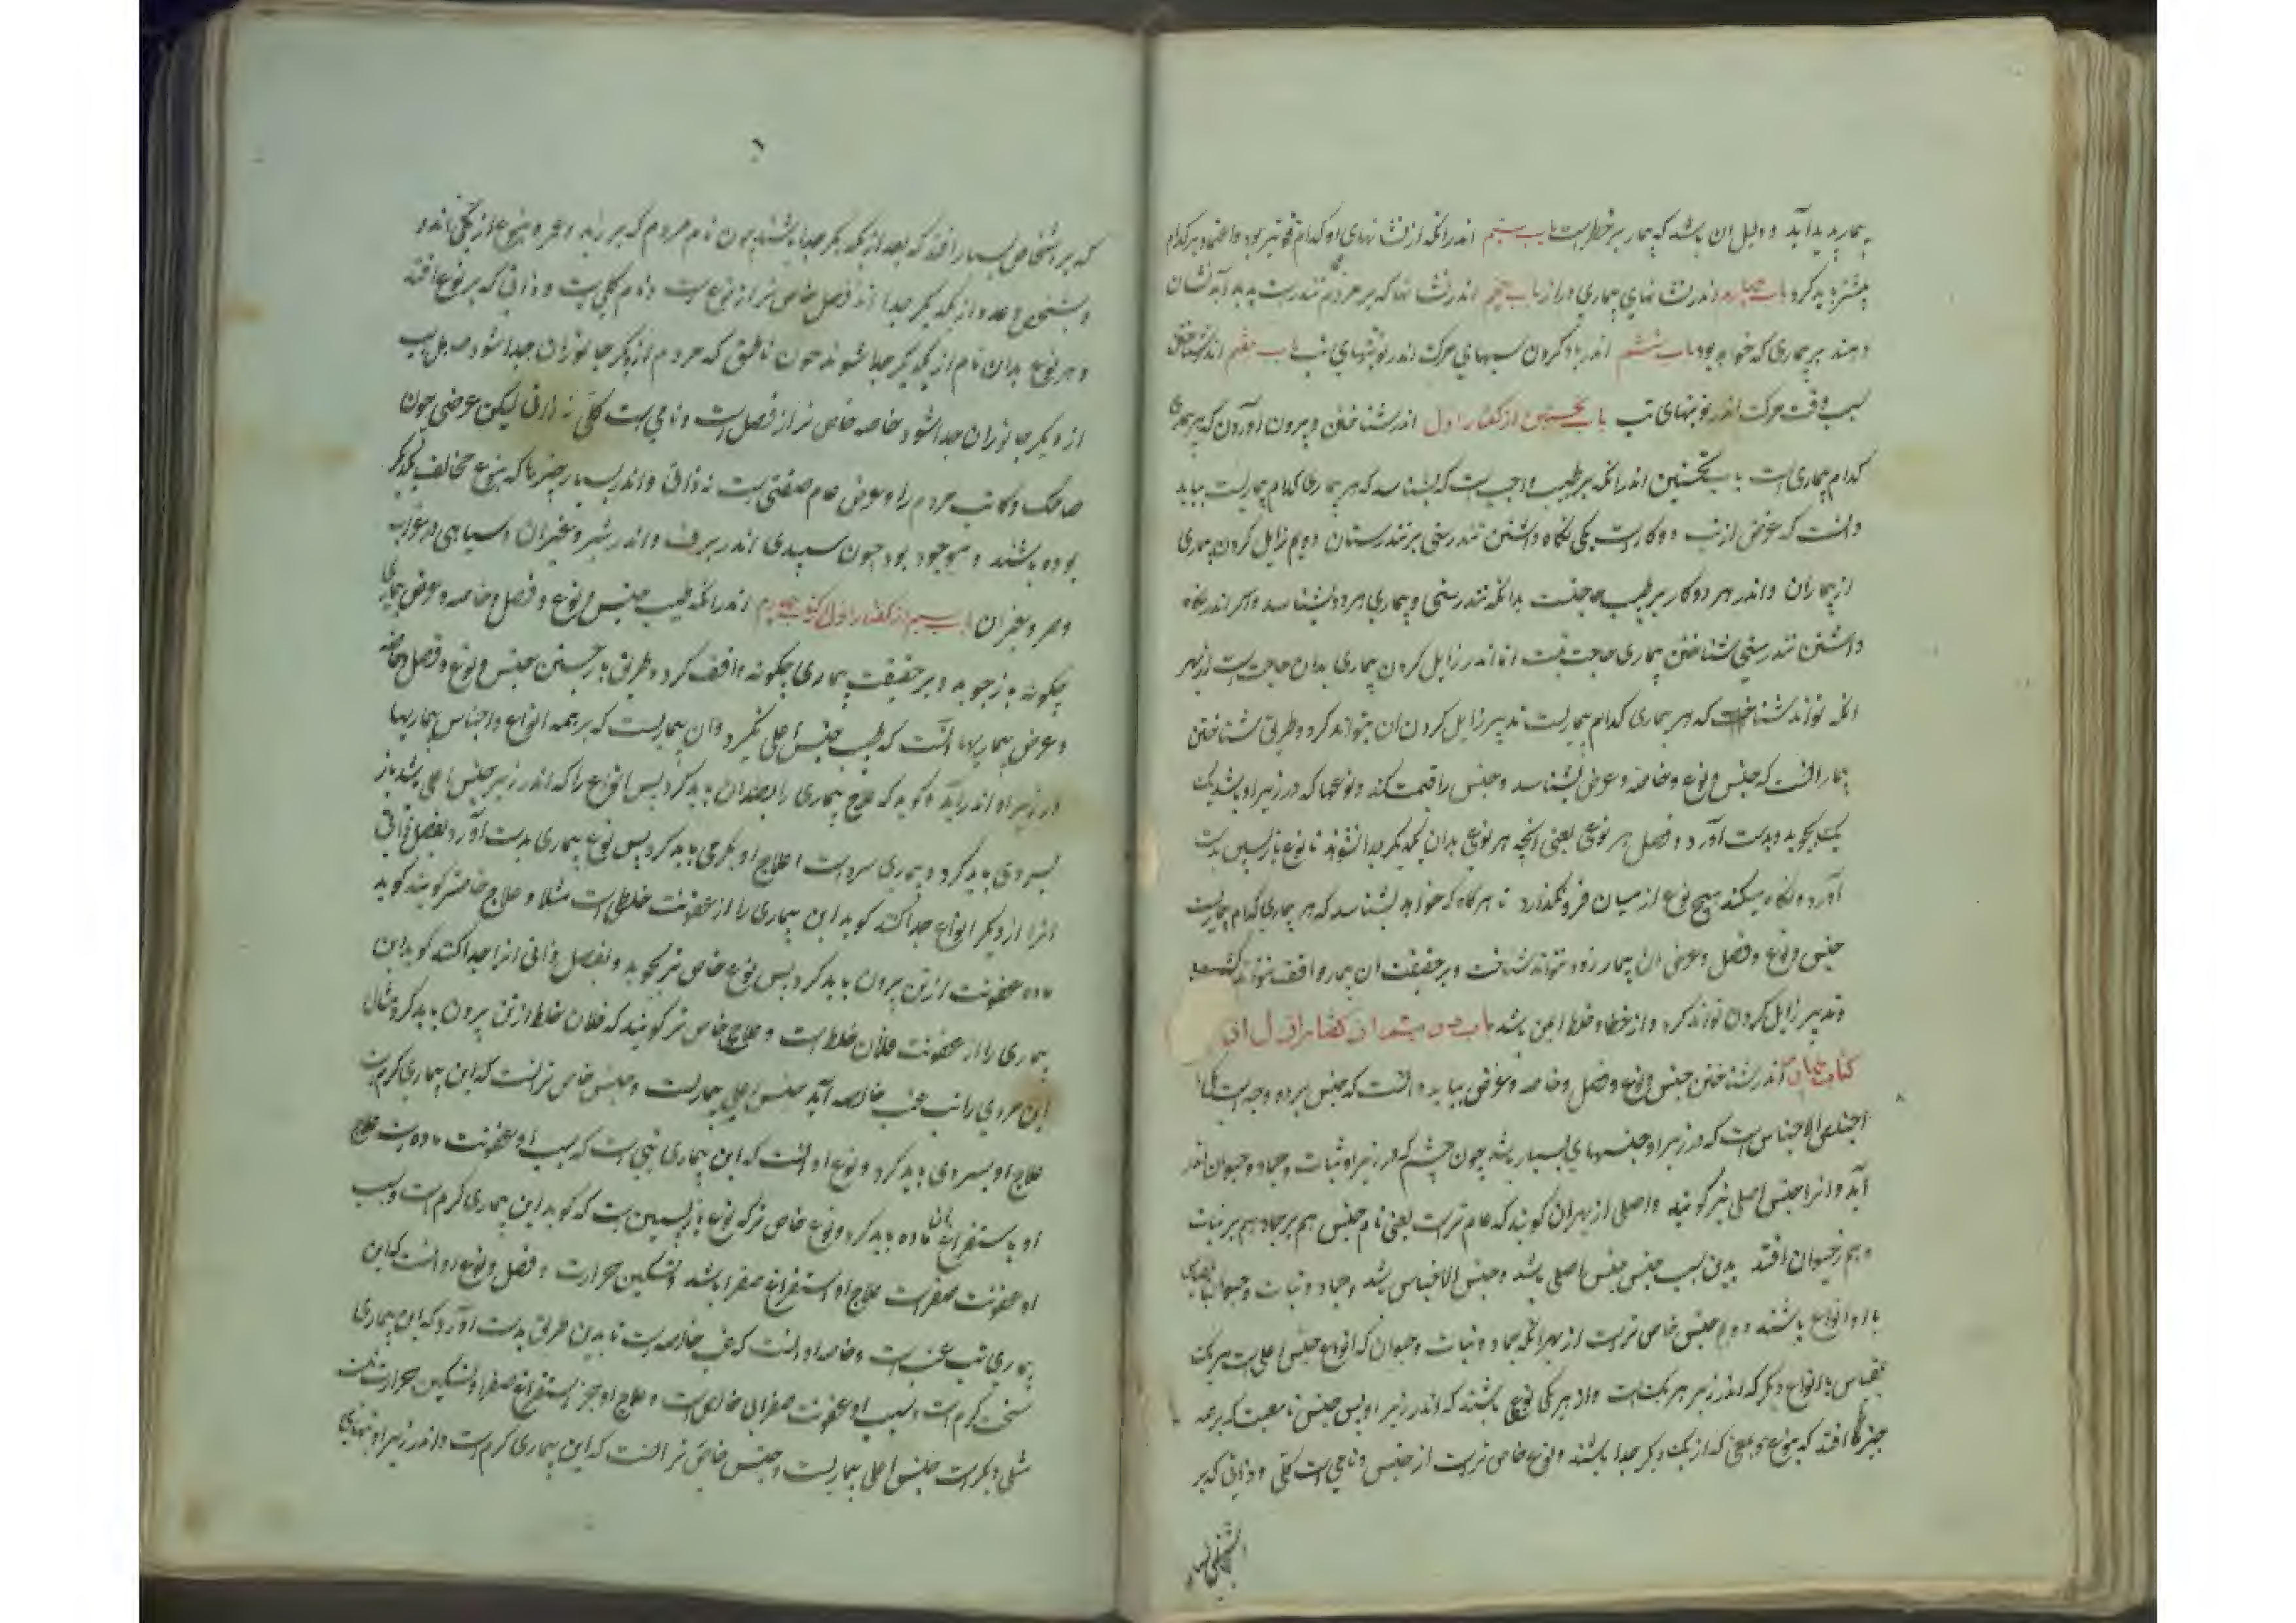 بیمار پدید آید و دلیل آن باشد که بیمار بر خطر است باب سیم اندر آنکه از نشانهای او کدام قوی‌تر بود و اعتماد بر کدام
بیشتر باید کرد باب چهارم اندر نشانهای بیماری دراز باب پنجم اندر نشانها که بر مردم تندرست پدید آید نشان
دهند بر بیماری که خواهد بود باب ششم اندر یاد کردن سببهای حرکت اندر نوبتهای تب باب هفتم اندر شناختن
سبب وقت حرکت اندر نوبتهای تب باب نخستین از گفتار اول اندر شناختن و بیرون آوردن که هر بیماری
کدام بیماری است باب نخستین اندر آنکه بر طبیب واجب است که بشناسد که هر بیماری کدام بیماریست بباید
دانست که غرض از طب دو کار است یکی نگاه داشتن تندرستی بر تندرستان دویم زایل کردن بیماری
از بیماران و اندر هر دو کار بر طبیب حاجتست بدانکه تندرستی و بیماری هر دو بشناسد و هر اندر نگاه
داشتن تندرستی شناختن بیماری حاجت نیست اما اندر زایل کردن بیماری بدان حاجت است از بهر
آنکه تواند شناخت که هر بیماری کدام بیماریست تدبیر زایل کردن آن بتواند کرد و طریق شناختن
بیمار آنست که جنس و نوع و خاصه و عرض بشناسد و جنس را قسمت کند و نوعها که در زیر او باشد یک
یک بجوید و بدست آورد و فصل هر نوعی یعنی آنچه هر نوعی بدان از یکدیگر جدا شوند تا نوع بازپسین بدست
آورد و نگاه میکند هیچ نوع از میان فرو نگذارد تا هر گاه که خواهد بشناسد که هر بیماری کدام بیماریست
جنس و نوع و فصل و عرض آن بیمار زود بتواند شناخت و بر حقیقت آن بیمار واقف بتواند گشت
و تدبیر زایل کردن تواند کرد و از خطا و غلط ایمن باشد باب دویم از گفتار اول از
کتاب اندر شناختن جنس و نوع و فصل و خاصه و عرض بباید دانست که جنس بر دو وجه است یکی
الاجناس است که در زیر او جنسهای بسیار باشد چون جسم که در زیر او نبات و جماد و حیوان اندر
آید و آنرا جنس اصلی نیز گویند و اصلی از بهر آن گویند که عام‌تر است یعنی نام جنس هم بر جماد هم بر نبات
و هم بر حیوان افتد بدین سبب جنس جنس اصلی باشد و جنس الاجناس باشد و جماد و نبات و حیوان
با او انواع باشند دوم جنس خاص‌تر است از بهر آنکه جماد و نبات و حیوان که انواع جنس اعلی است هر یک
بقیاس با انواع دیگر که اندر زیر هر یک است و از هر یکی نوعی باشند که اندر زیر او پس جنس نامیست که بر همه
چیزها افتد که بنوع و معنی که از یک دیگر جدا باشند و نوع خاص‌تر است از جنس و نامی است کلی و ذاتی که بر
که بر اشخاص بسیار افتد که بعدد از یکدیگر جدا باشند چون نام مردم که بر زید و عمر و بنوع از یکی‌اند و
و بشخص و عدد از یکدیگر جدا اند فصل خاص‌تر از نوع است و نام کلی است و ذاتی که بر نوع افتد
و هر نوع بدان نام از یکدیگر جدا شوند چون ناطق که مردم از دیگر جانوران جدا شود
از دیگر جانوران جدا شود خاصه خاص‌تر از فصل است و نامی است کلی نه ذاتی لیکن عرضی چون
ضاحک و کاتب مردم را و عرض عام صفتی است نه ذاتی و اندر بسیار چیزها که بنوع مخالف یکدیگر
بوده باشند و موجود بود چون سپیدی اندر برف و اندر شیر و غیر آن و سیاهی در غراب
و باب سیم از گفتار اول از کتاب اندر آنکه طبیب جنس و نوع و فصل و خاصه و عرض بیماری
چگونه باز جوید و بر حقیقت بیماری چگونه واقف گردد طریق باز جستن جنس و نوع و فصل و خاصه
و عرض بیماریها آنست که طبیب جنس اعلی بگیرد و آن بیماریست که بر همه انواع و اجناس بیماریها
در زیر او اندر آید و گوید که علاج بیماری را بضد آن باید کرد پس انواع را که اندر زیر جنس اعلی باشد باز
بسردی باید کرد و بیماری سرد است علاج او بگرمی باید کرد پس نوع بیماری بدست آورد و بفصل ذاتی
آنرا از دیگر انواع جدا کند گوید این بیماری را از عفونت خلطی است مثلا و علاج خاص‌تر گویند گوید
ماده عفونت از تن بیرون باید کرد پس نوع خاص‌تر بجوید و بفصل ذاتی آنرا جدا کند گوید این
بیماری را از عفونت فلان خلط است و علاج خاص‌تر گویند که فلان خلط از تن بیرون باید کرد مثال
این مردی را تب غب خالصه آید جنس اعلی بیماریست و جنس خاص‌تر آنست که این بیماری گرم است
علاج او بسردی باید کرد و نوع او آنست که این بیماری تبی است که سبب او عفونت ماده است علاج
او باستفراغ آن ماده باید کرد و نوع خاص‌تر که نوع بازپسین است که گوید این بیماری گرم است و سبب
او عفونت صفر است علاج او استفراغ صفرا باشد و تسکین حرارت و فصل و نوع او آنست که این
بیماری تب غب است و خاصه او آنست که غب خالصه است تا بدین طریق بدست آورد که این بیماری
سخت گرم است و سبب او عفونت صفرای خالص است و علاج او جز استفراغ صفرا و تسکین حرارت نیست
مثالی دیگر است جنس اعلی بیماریست و جنس خاص‌تر آنست که این بیماری گرم است و اندر زیر او